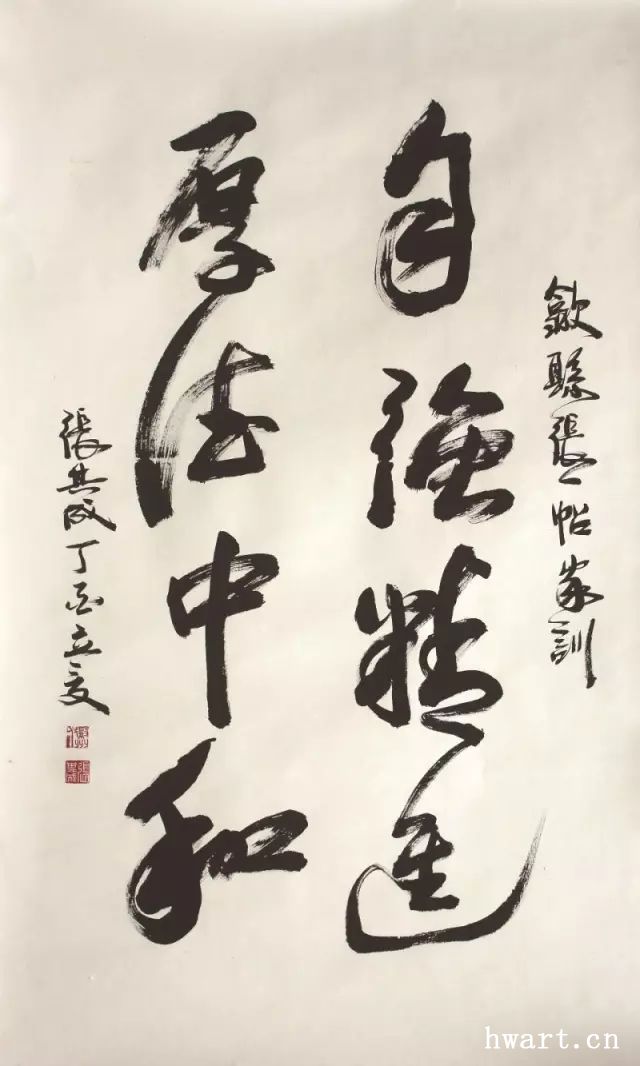 歙縣張一帖家訓
自強精進
厚德中和
張其成丁酉立夏
hwart.cn